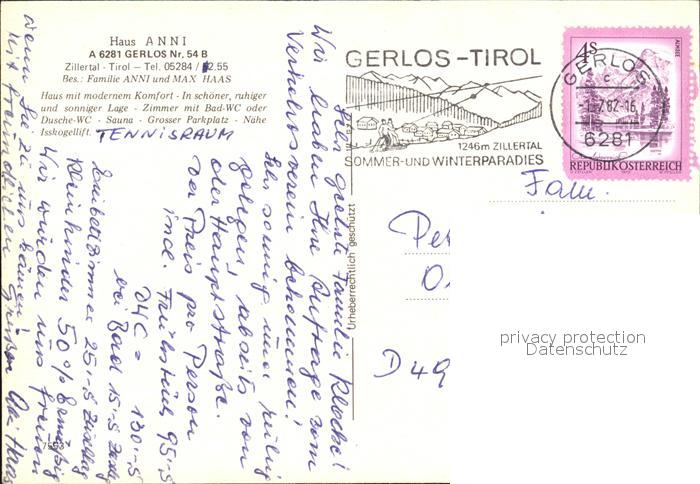 Haus ANNI
A 6281 GERLOS Nr. 54 B
Zillertal - Tirol — Tel. 05284 / 52.55
Bes.: Familie ANNI und MAX HAAS
Haus mit modernem Komfort - In schöner, ruhiger
und sonniger Lage - Zimmer mit Bad-WC oder
Dusche-WC - Sauna - Grosser Parkplatz - Nähe
Isskogellift.
TENNISRAUM
Sehr geehrte Familie
Wir haben Ihre Anfrage vom
Verkehrsverein bekommen!
Sehr sonnig und ruhig
gelegen, abseits von
der Hauptstraße.
Der Preis pro Person
incl. Frühstück 95,-S
D+WC = 130,-S
bei Bad 15,-S
Einbettzimmer 25,-S Zuschlag
Kleinkinder 50% Ermäßig
Wir würden uns freuen
wenn Sie zu uns kämen!
Mit freundlichen Grüßen Haas
7593
Urheberrechtlich geschützt
GERLOS-TIROL
1246m ZILLERTAL
SOMMER-UND WINTERPARADIES
GERLOS
c
6281
4s
ALMSEE
REPUBLIK ÖSTERREICH
Fam.
D 49
privacy protection
Datenschutz